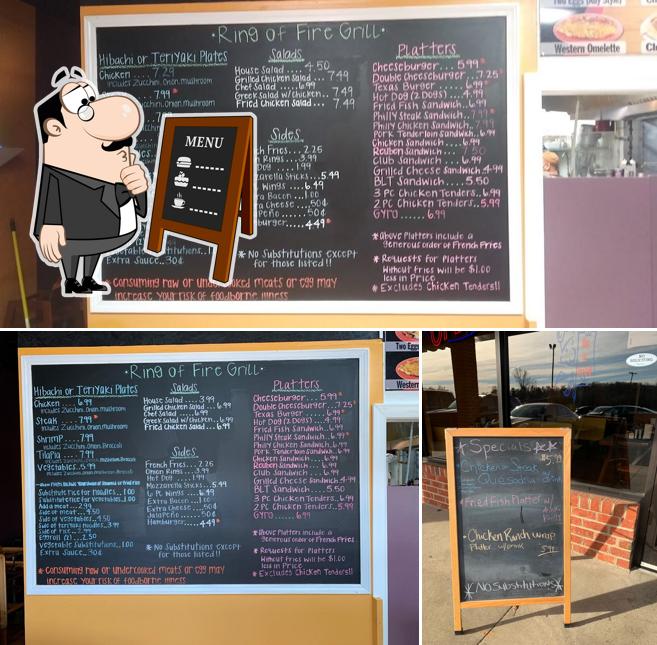 Ring of Fire Grill
Hibachi or Teriyaki Plates
Chicken .... 7.29
includes Zucchini, Onion, mushroom
7.99*
Extra Sauce..30¢
Salads
House Salad .... 4.50
Grilled Chicken Salad ... 7.49
Chef Salad .....6.99
Greek Salad w/chicken.. 7.49
Fried Chicken Salad ... 7.49
Sides
ch Fries... 2.26
n Rings...3.99
Dog ....1.99
zarella Sticks...5.49
Wings ....6.49
ra Bacon...1.00
ra Cheese ...50¢
peño ....50¢
burger.....4.49*
* No Substitutions except
for those listed!!
Platters
Cheeseburger.... 5.99*
Double Cheeseburger...7.25*
Texas Burger .....6.99*
Hot Dog (2 Dogs) ....4.99
Fried Fish Sandwich..6.99
Philly Steak Sandwich..7.99*
Philly Chicken Sandwich..7.99
Pork Tenderloin Sandwich..6.99
Chicken Sandwich.....6.99
Reuben Sandwich.....7.50
Club Sandwich ....6.99
Grilled Cheese Sandwich.4.99
BLT Sandwich.....5.50
3 PC Chicken Tenders..6.99
2 PC Chicken Tenders..5.99
Gyro......6.99
* Above Platters include a
generous order of French Fries
* Requests for Platters
Without fries will be $1.00
less in Price
* Excludes Chicken Tenders!!
Consuming raw or undercooked meats or egg may
increase your risk of foodborne illness
MENU
Two Eggs (Any Style)
Western Omelette
Ring of Fire Grill
Hibachi or Teriyaki Plates
Chicken .... 6.99
includes Zucchini, Onion, mushroom
Steak .... 7.99*
includes Zucchini, Onion, mushroom
Shrimp .... 7.99
includes Zucchini, Onion, Broccoli
Tilapia .... 7.99
Vegetables..5.99
Substitute rice for noodles..1.00
Add a meat ...2.99
Side of meat ....4.50
Side of Vegetables..4.50
Side of teriyaki noodles..3.99
Side of rice...2.99
Eggroll (2) ...2.50
Vegetable Substitutions..1.00
Extra Sauce..30¢
Salads
House Salad .... 3.99
Grilled Chicken Salad ...6.99
Chef Salad .....6.99
Greek Salad w/chicken..6.99
Fried Chicken Salad ...6.99
Sides
French Fries...2.26
Onion Rings...3.99
Hot Dog ....1.99
Mozzarella Sticks...5.49
6 PC Wings ....6.49
Extra Bacon...1.00
Extra Cheese ...50¢
Jalapeño ....50¢
Hamburger.....4.49*
* No Substitutions except
for those listed!!
Platters
Cheeseburger.... 5.99*
Double Cheeseburger...7.25*
Texas Burger .....6.99*
Hot Dog (2 Dogs) ....4.99
Fried Fish Sandwich..6.99
Philly Steak Sandwich..6.99*
Philly Chicken Sandwich..6.99
Pork Tenderloin Sandwich..6.99
Chicken Sandwich.....6.99
Reuben Sandwich.....6.99
Club Sandwich ....6.99
Grilled Cheese Sandwich.4.99
BLT Sandwich.....5.50
3 PC Chicken Tenders..6.99
2 PC Chicken Tenders..5.99
Gyro......6.99
* Above Platters include a
generous order of French Fries
* Requests for Platters
Without fries will be $1.00
less in Price
* Excludes Chicken Tenders!!
* Consuming raw or undercooked meats or egg may
increase your risk of foodborne illness
Two Eggs
Western
NO SOLICITING
Specials
$5.99
Chicken or Steak
Quesadilla
Fried Fish Platter w/
Chicken Ranch wrap
Platter w/drink
NO Substitutions